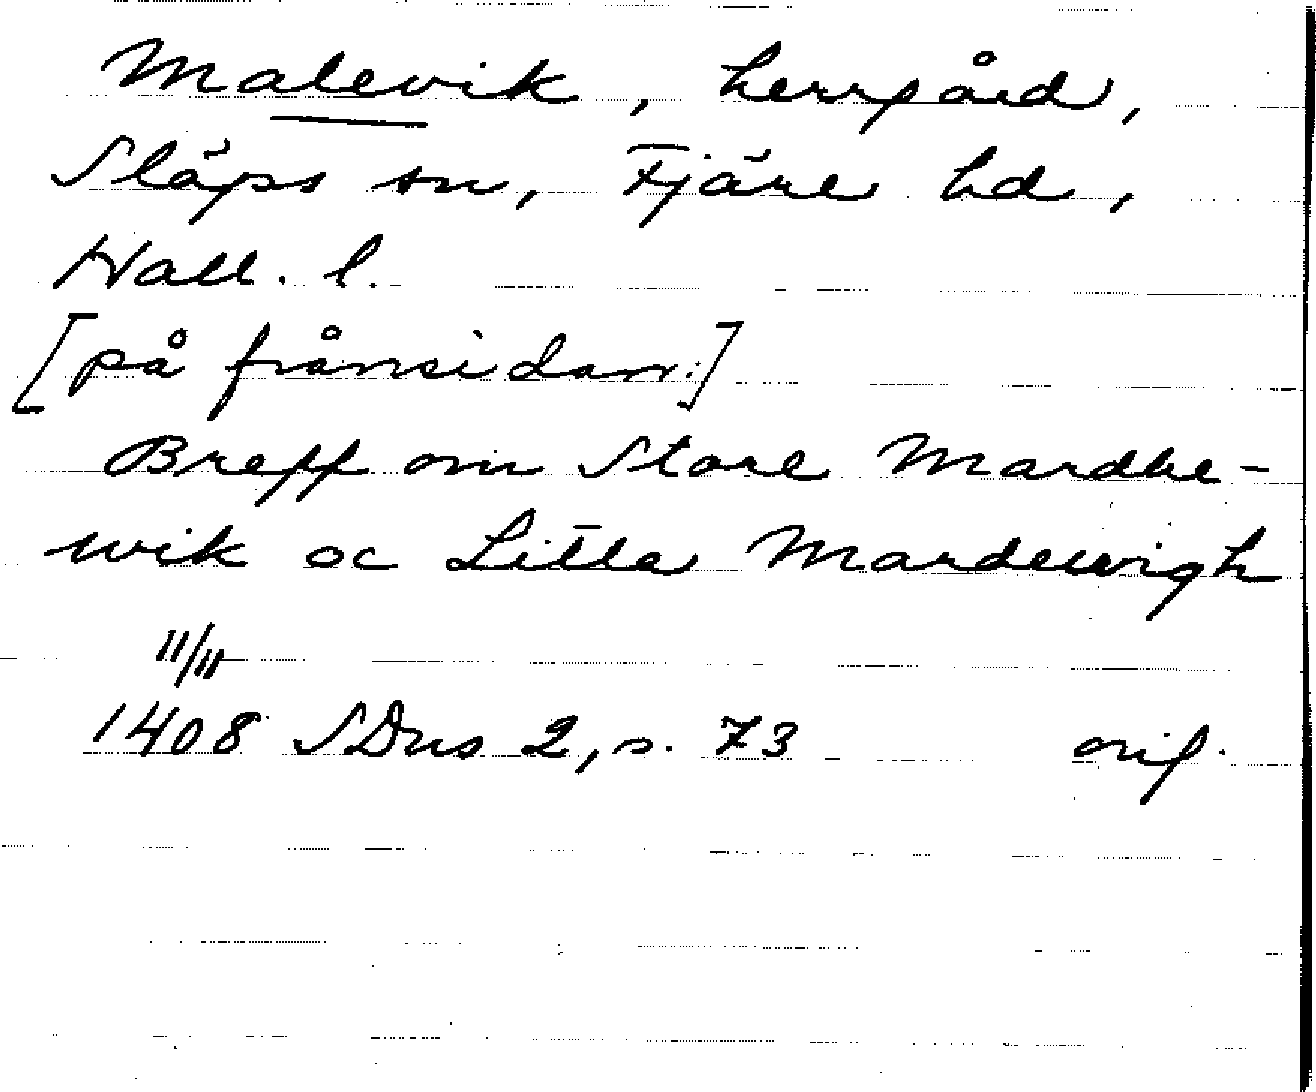 Malevik, herrgård,
Släps sn, Fjäre hd,
Hall. l.
[på frånsidan:]
Breff om Store Mardhe-
wik oc Litla Mardewigh
11/11
1408 SDns 2, s. 73 orig.